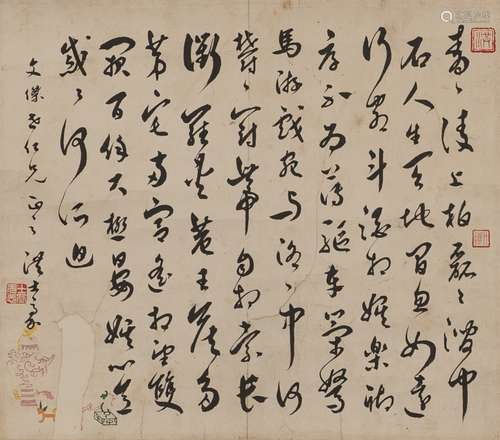 青々陵上柏磊々澗中
石人生天地間忽如遠
行客斗酒相娛樂聊
厚不為薄驅車策駑
馬游戲宛与洛々中何
鬱々冠帶自相索長
衢羅夾巷王侯多
第宅兩宮遙相望雙
闕百餘尺極宴娛心意
戚々何所迫
文傑老仁兄正之